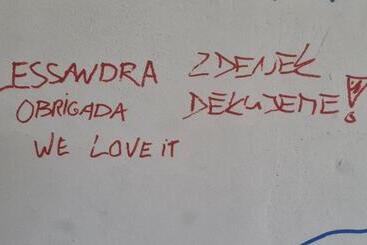 ESSANDRA ZDENEK
OBRIGADA DEKUJEME!
WE LOVE iT